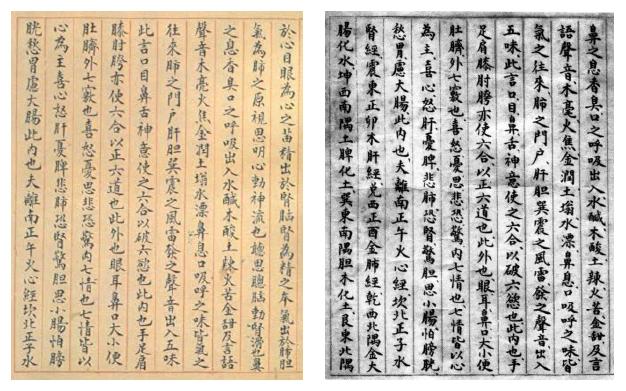 於心目眼為心之苗精出於腎腦腎為精之本氣出於肺胆
氣為肺之原視思明心動神流也聽思聰腦動腎滑也鼻
之息香臭口之呼吸出入水鹹木酸土辣火苦金甜及言語
聲音木亮火焦金潤土塕水漂鼻息口吸呼之味皆氣之
往來肺之門户肝胆巽震之風雷發之聲音出入五味
此言口目鼻古神意使之六合以破六慾也此内也手足肩
膝肘胯亦使六合以正六道也此外也眼耳鼻口大小便
肚臍外七竅也喜怒憂思悲恐驚内七情也七情皆以
心為主喜心怒肝憂脾悲肺恐腎驚胆思小腸怕膀
胱愁胃慮大腸此内也夫離南正午火心經坎北正子水
鼻之息香臭口之呼吸出入水鹹木酸土辣火苦金甜及言
語聲音木毫火焦金潤土塕水漂鼻息口吸呼之味皆
氣之往來肺之門户肝胆巽震之風雷發之聲音出入
五味此言口目鼻古神意使之六合以破六慾也此内也手
足肩膝肘胯亦使六合以正六道也此外也眼耳鼻口大小便
肚臍外七竅也喜怒憂思悲恐驚内七情也七情皆以心
為主喜心怒肝憂脾悲肺恐腎驚胆思小腸怕膀胱
愁胃慮大腸此内也夫離南正午火心經坎北正子水
腎經震東正卯木肝經兑西正酉金肺經乾西北隅金大
腸化水坤西南隅土脾化土巽東南隅胆木化土艮東北隅